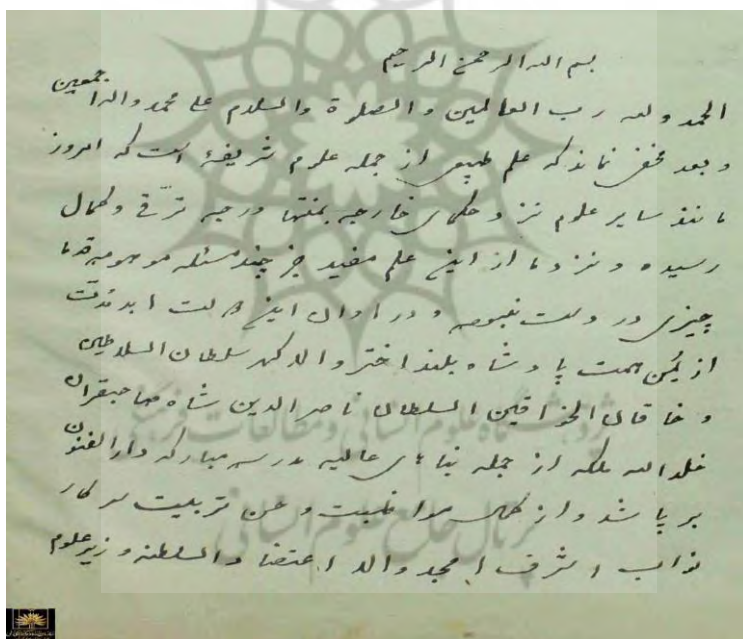 بسم الله الرحمن الرحیم
الحمد لله رب العالمین و الصلوة والسلام علی محمد واله اجمعین
و بعد مخفی نماند که علم طبیعی از جمله علوم شریفۀ است که امروز
مانند سایر علوم نزد حکمای خارجه بمنتها درجه ترقّی و کمال
رسیده و نزد ما از این علم مفید جز چند مسئله موهومه قدما
چیزی در دست نبوده و در اوان این دولت ابد مدّت
از یُمن همت پادشاه بلند اختر والا گهر سلطان السلاطین
و خاقان الخواقین السلطان ناصرالدین شاه صاحبقران
خلد الله ملکه از جمله بناهای عالیه مدرسه مبارکه دارالفنون
برپا شد و از کمال مواظبت و حسن تربیت سرکار
نواب اشرف امجد والا اعتضاد السلطنه وزیر علوم
پژوهشگاه علوم انسانی و مطالعات فرهنگی
پرتال جامع علوم انسانی